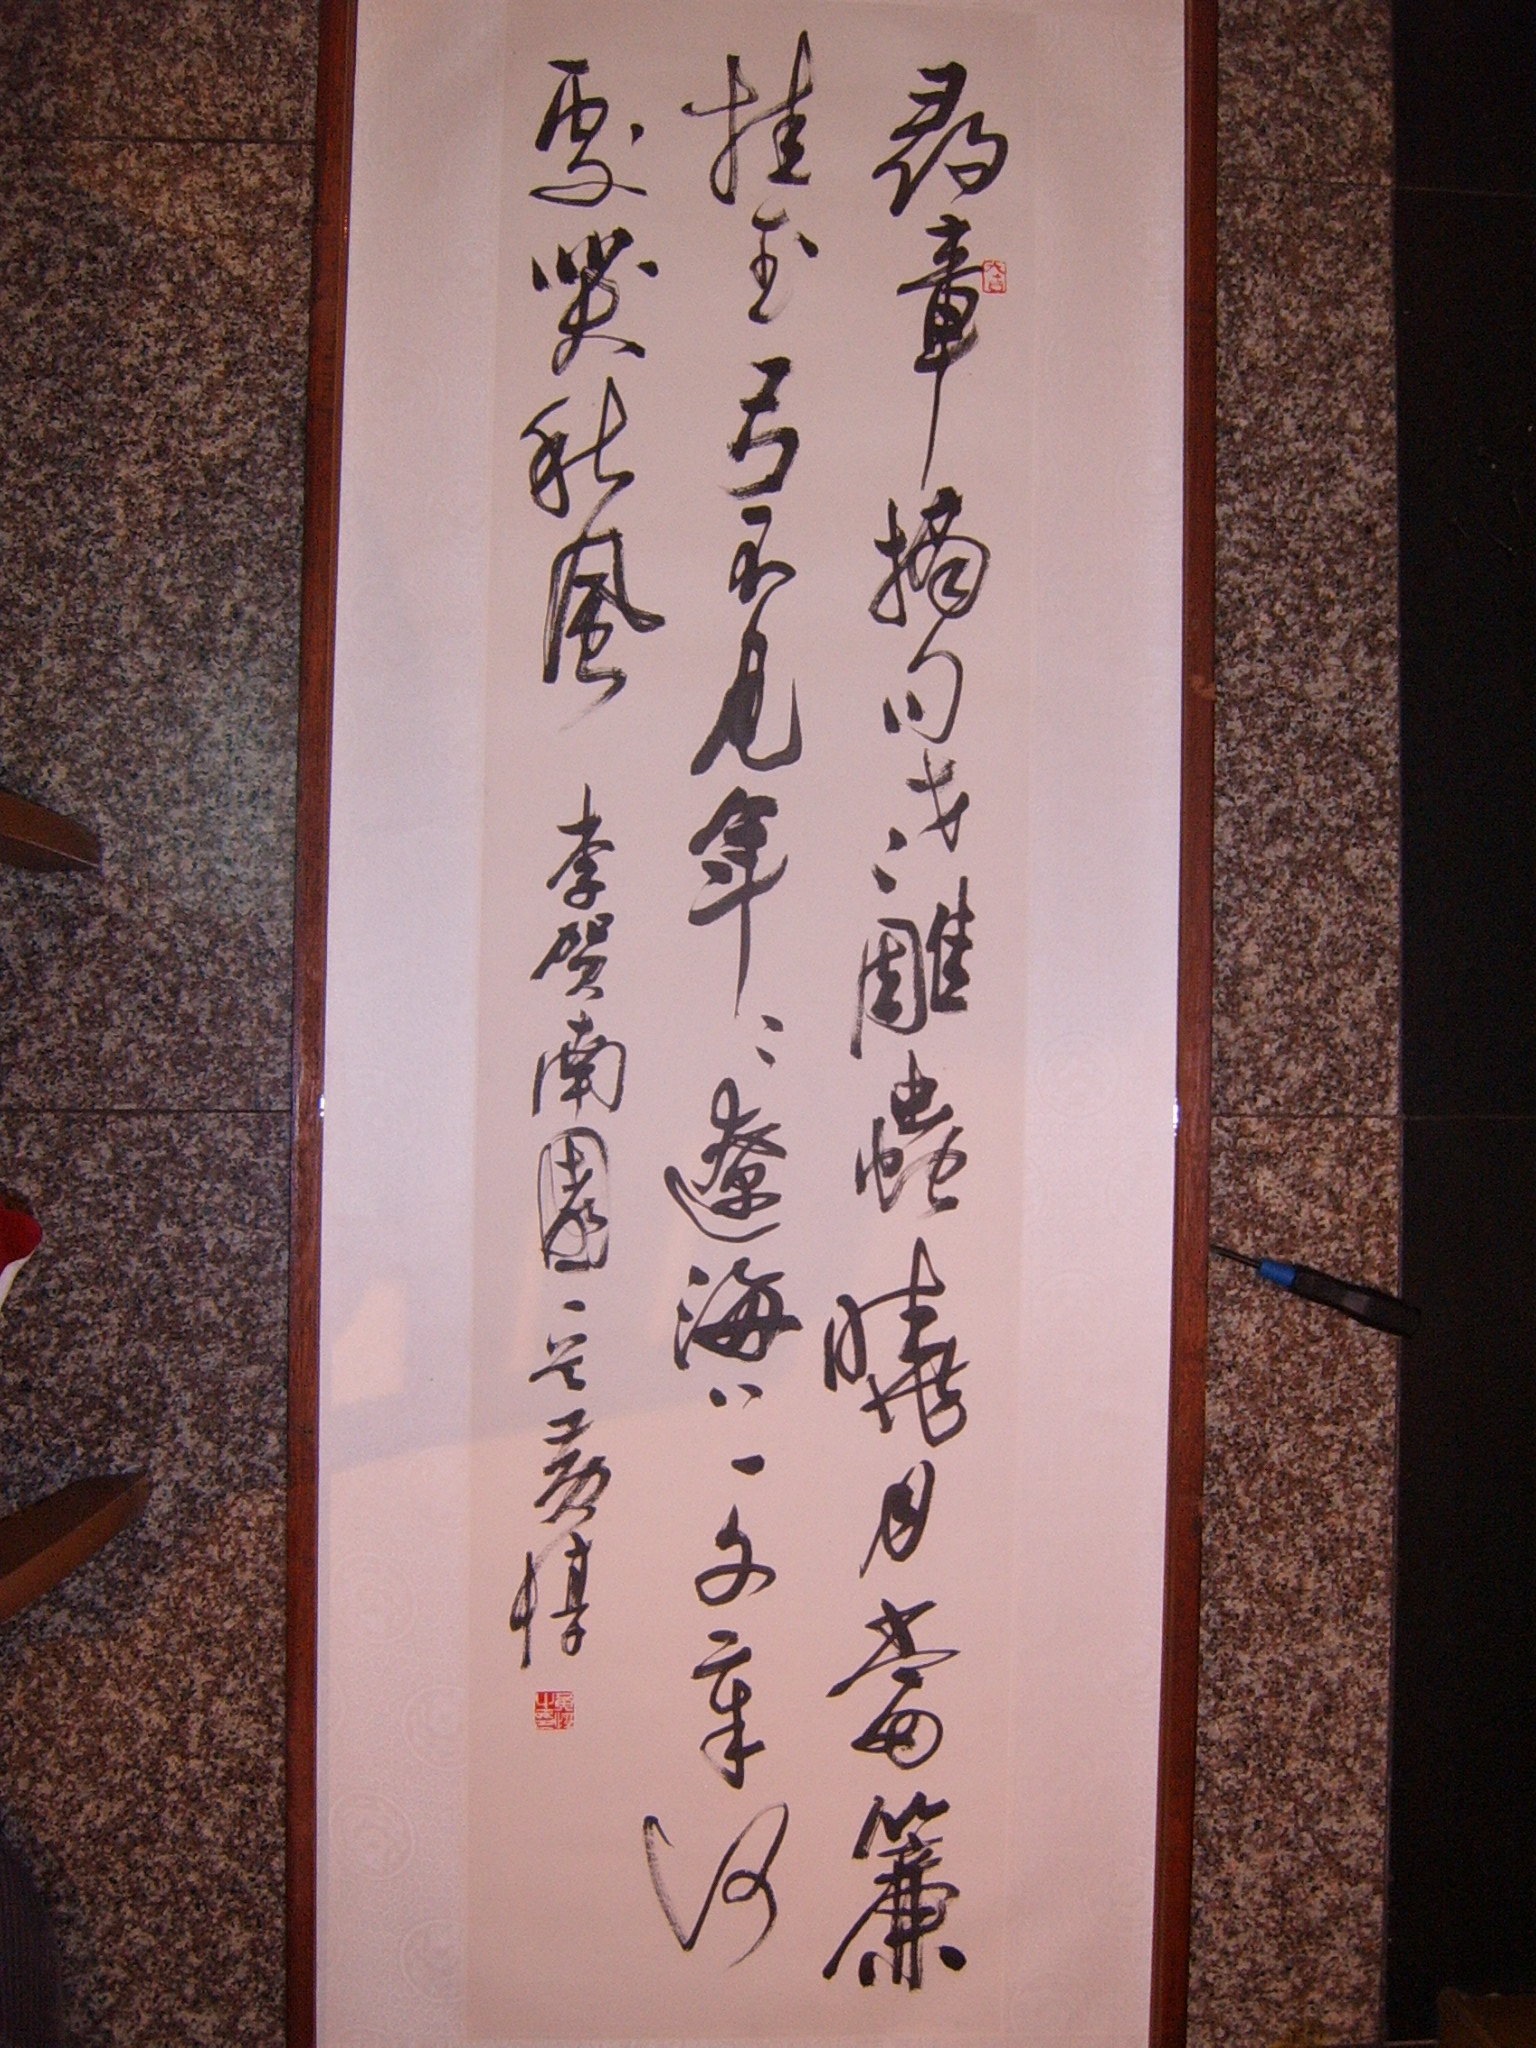 尋章摘句老雕蟲曉月當簾
挂玉弓不見年々遼海上文章何
處哭秋風 李賀南園一首 黃惇
大吉